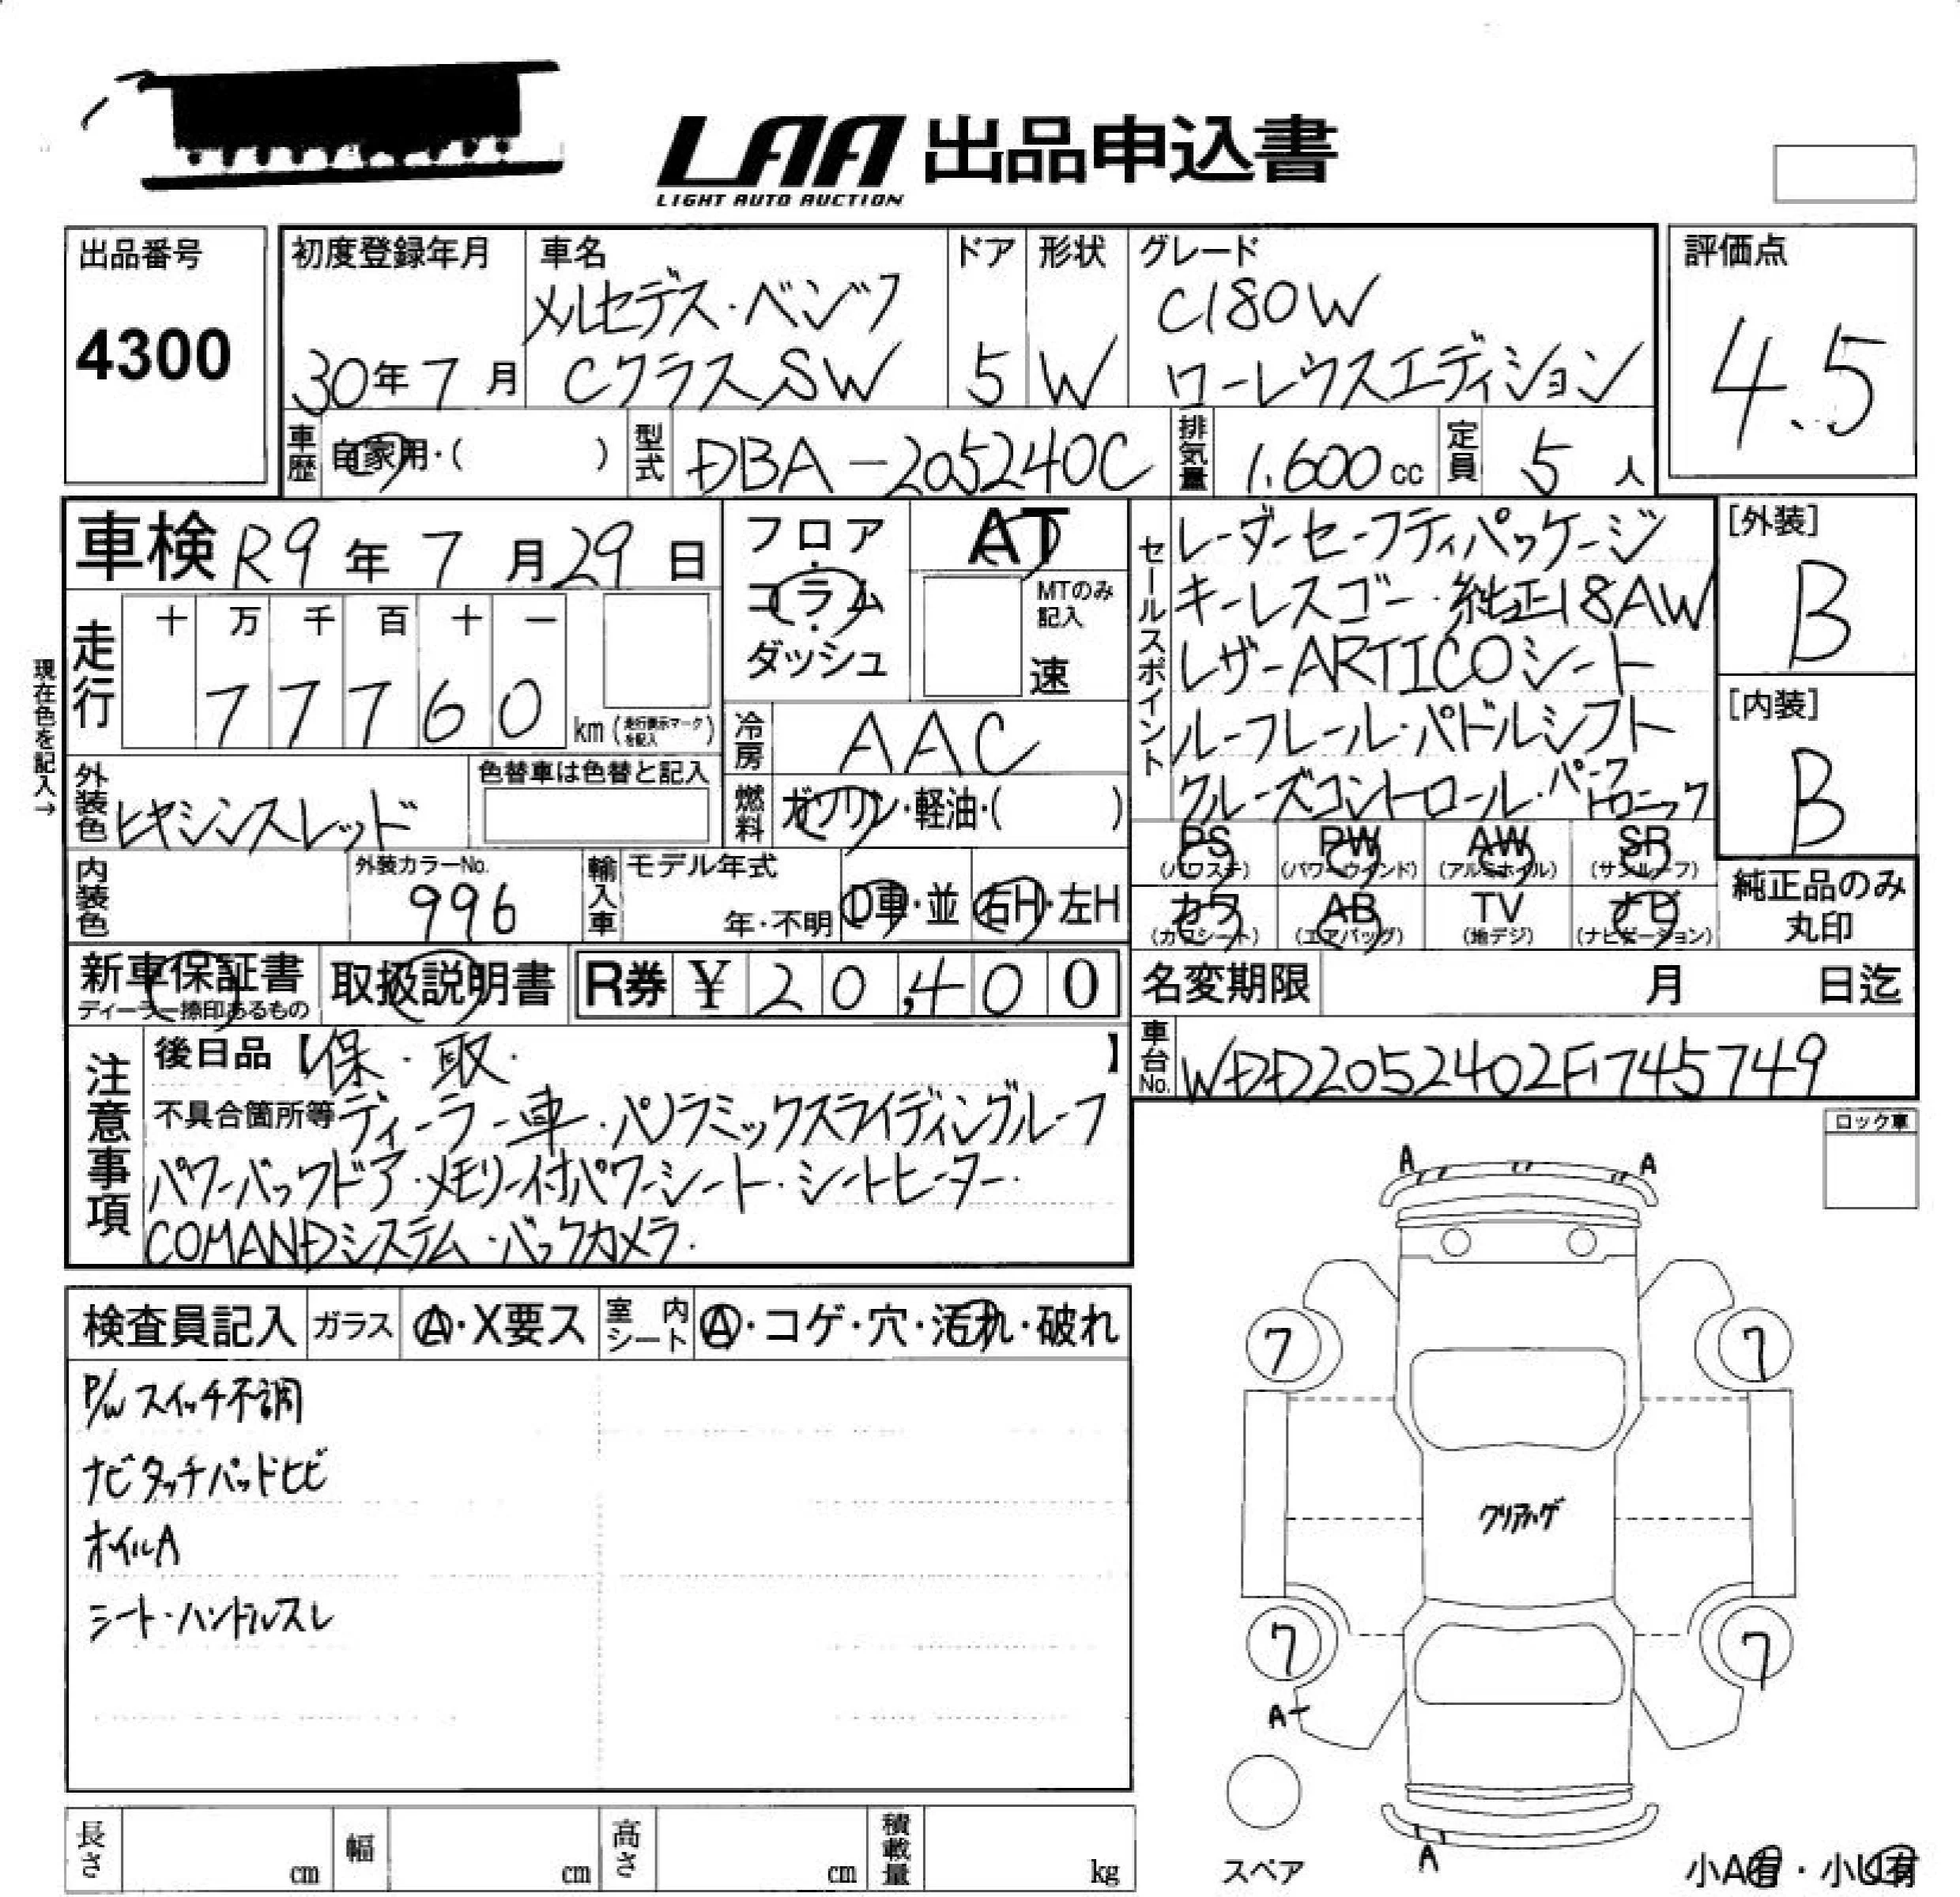 LAA 出品申込書
LIGHT AUTO AUCTION
出品番号
4300
初度登録年月
30年 7 月
車名
メルセデス・ベンツ
CクラスSW
ドア
5
形状
W
グレード
C180W
ローレウスエディション
評価点
4.5
車歴
自家用・( )
型式
DBA-205240C
排気量
1.600 cc
定員
5 人
車検 R9 年 7 月 29 日
フロア
・
コラム
・
ダッシュ
AT
MTのみ
記入
速
セールスポイント
レーダーセーフティパッケージ
キーレスゴー・純正18AW
レザーARTICOシート
ルーフレール・パドルシフト
クルーズコントロール・パークトロニック
[外装]
B
[内装]
B
現在色を記入→
走行
十 万 千 百 十 一
7 7 7 6 0
km (走行表示マークを記入)
冷房
AAC
燃料
ガソリン・軽油・( )
外装色
ヒヤシンスレッド
色替車は色替と記入
内装色
外装カラーNo.
996
輸入車
モデル年式
年・不明
D車・並
右H・左H
PS
(パワステ)
PW
(パワーウインド)
AW
(アルミホイル)
SR
(サンルーフ)
カワ
(カワシート)
AB
(エアバッグ)
TV
(地デジ)
ナビ
(ナビゲーション)
純正品のみ
丸印
新車保証書
ディーラー捺印あるもの
取扱説明書
R券 ¥ 20,400
名変期限 月 日迄
車台No.
WDD2052402F745749
注意事項
後日品【保・取・ 】
不具合箇所等 ディーラー車・パノラミックスライディングルーフ
パワーバックドア・メモリー付パワーシート・シートヒーター・
COMANDシステム・バックカメラ.
ロック車
検査員記入
ガラス
A・X要ス
室内シート
A・コゲ・穴・汚れ・破れ
P/Wスイッチ不調
ナビタッチパッドヒビ
オイルA
シート・ハンドルスレ
A
A
7
7
クリアハゲ
7
7
A
A
スペア
小A有・小U有
長さ cm
幅 cm
高さ cm
積載量 kg